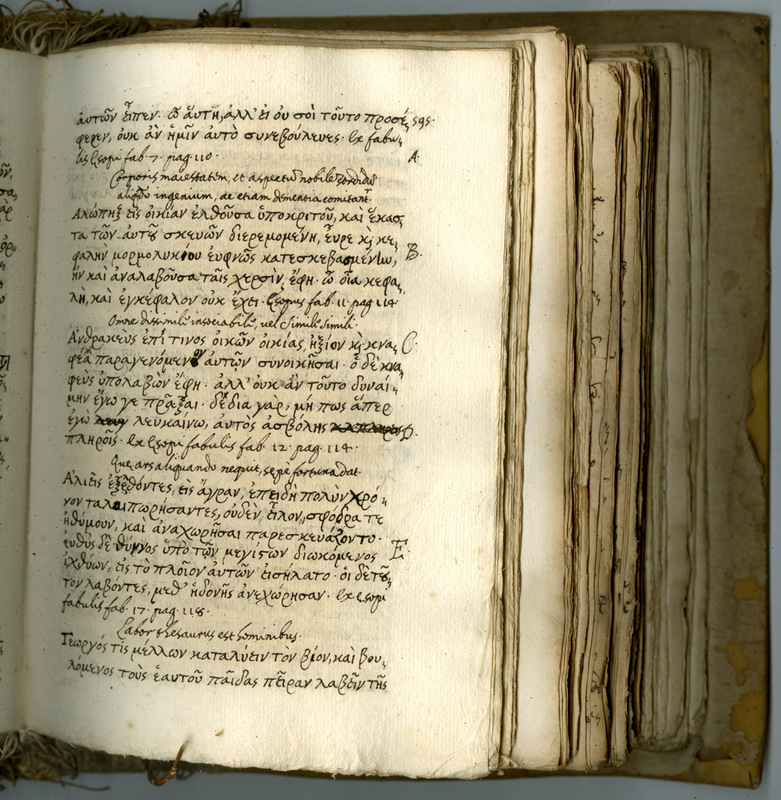 αὐτῶν εἶπεν· ὦ αὕτη, ἀλλ' εἰ οὐ σοὶ τοῦτο προσέ, 595.
φερεν, οὐκ ἂν ἡμῖν αὐτὸ συνεβούλευες. Ex fabu,
lis Esopi fab. 7. pag. 110. A.
Corporis maiestatem, et aspectū nobile sordidū
aliqñ ingenium, ac etiam dementia comitant.
Ἀλώπηξ εἰς οἰκίαν ἐλθοῦσα ὑποκριτοῦ, καὶ ἕκασ,
τα τῶν αὐτοῦ σκευῶν διερεμομένη, εὗρε κỳ κε,
φαλὴν μορμολυκίου εὐφυῶς κατεσκεβασμένlω, B.
ἣν καὶ ἀναλαβοῦσα ταῖς χερσὶν, ἔφη· ὦ οἵα κεφα,
λὴ, καὶ ἐγκέφαλον οὐκ ἔχει. Esopus fab. 11. pag. 114.
Omne dissimile insociabile, vel Simile simili.
Ἀνθρακεὺς ἐπί τινος οἰκῶν οἰκίας, ἠξίου κỳ κνα, C.
φέα παραγενόμενον αὐτῶν συνοικῆσαι. ὁ δὲ κνα,
φεὺς ὑπολαβὼν ἔφη· ἀλλ' οὐκ ἂν τοῦτο δυναί,
μην ἔγω γε πρᾶξαι. δέδια γὰρ, μή πως ἅπερ
ἐγὼ λευκαίνω, αὐτὸς ἀσβόλης D.
πληροῖς. Ex Esopi fabulis fab. 12. pag. 114.
Que ars aliquando nequit, sepe fortuna dat.
Ἁλιεῖς ἐξελθόντες, εἰς ἄγραν, ἐπειδὴ πολὺν χρό,
νον ταλαιπωρήσαντες, οὐδὲν εἷλον, σφόδρα τε
ἠθύμουν, καὶ ἀναχωρῆσαι παρεσκευάζοντο.
εὐθὺς δὲ θύννος ὑπὸ τῶν μεγίστων διωκόμενος E.
ἰχθύων, εἰς τὸ πλοῖον αὐτῶν εἰσήλατο. οἱ δὲ τοῦ,
τον λαβόντες, μεθ' ἡδονῆς ἀνεχώρησαν. Ex Esopi
fabulis fab. 17. pag. 118.
Labor thesaurus est hominibus.
Γεωργός τις μέλλων καταλύειν τὸν βίον, καὶ βου,
λόμενος τοὺς ἑαυτοῦ παῖδας πεῖραν λαβεῖν τῆς